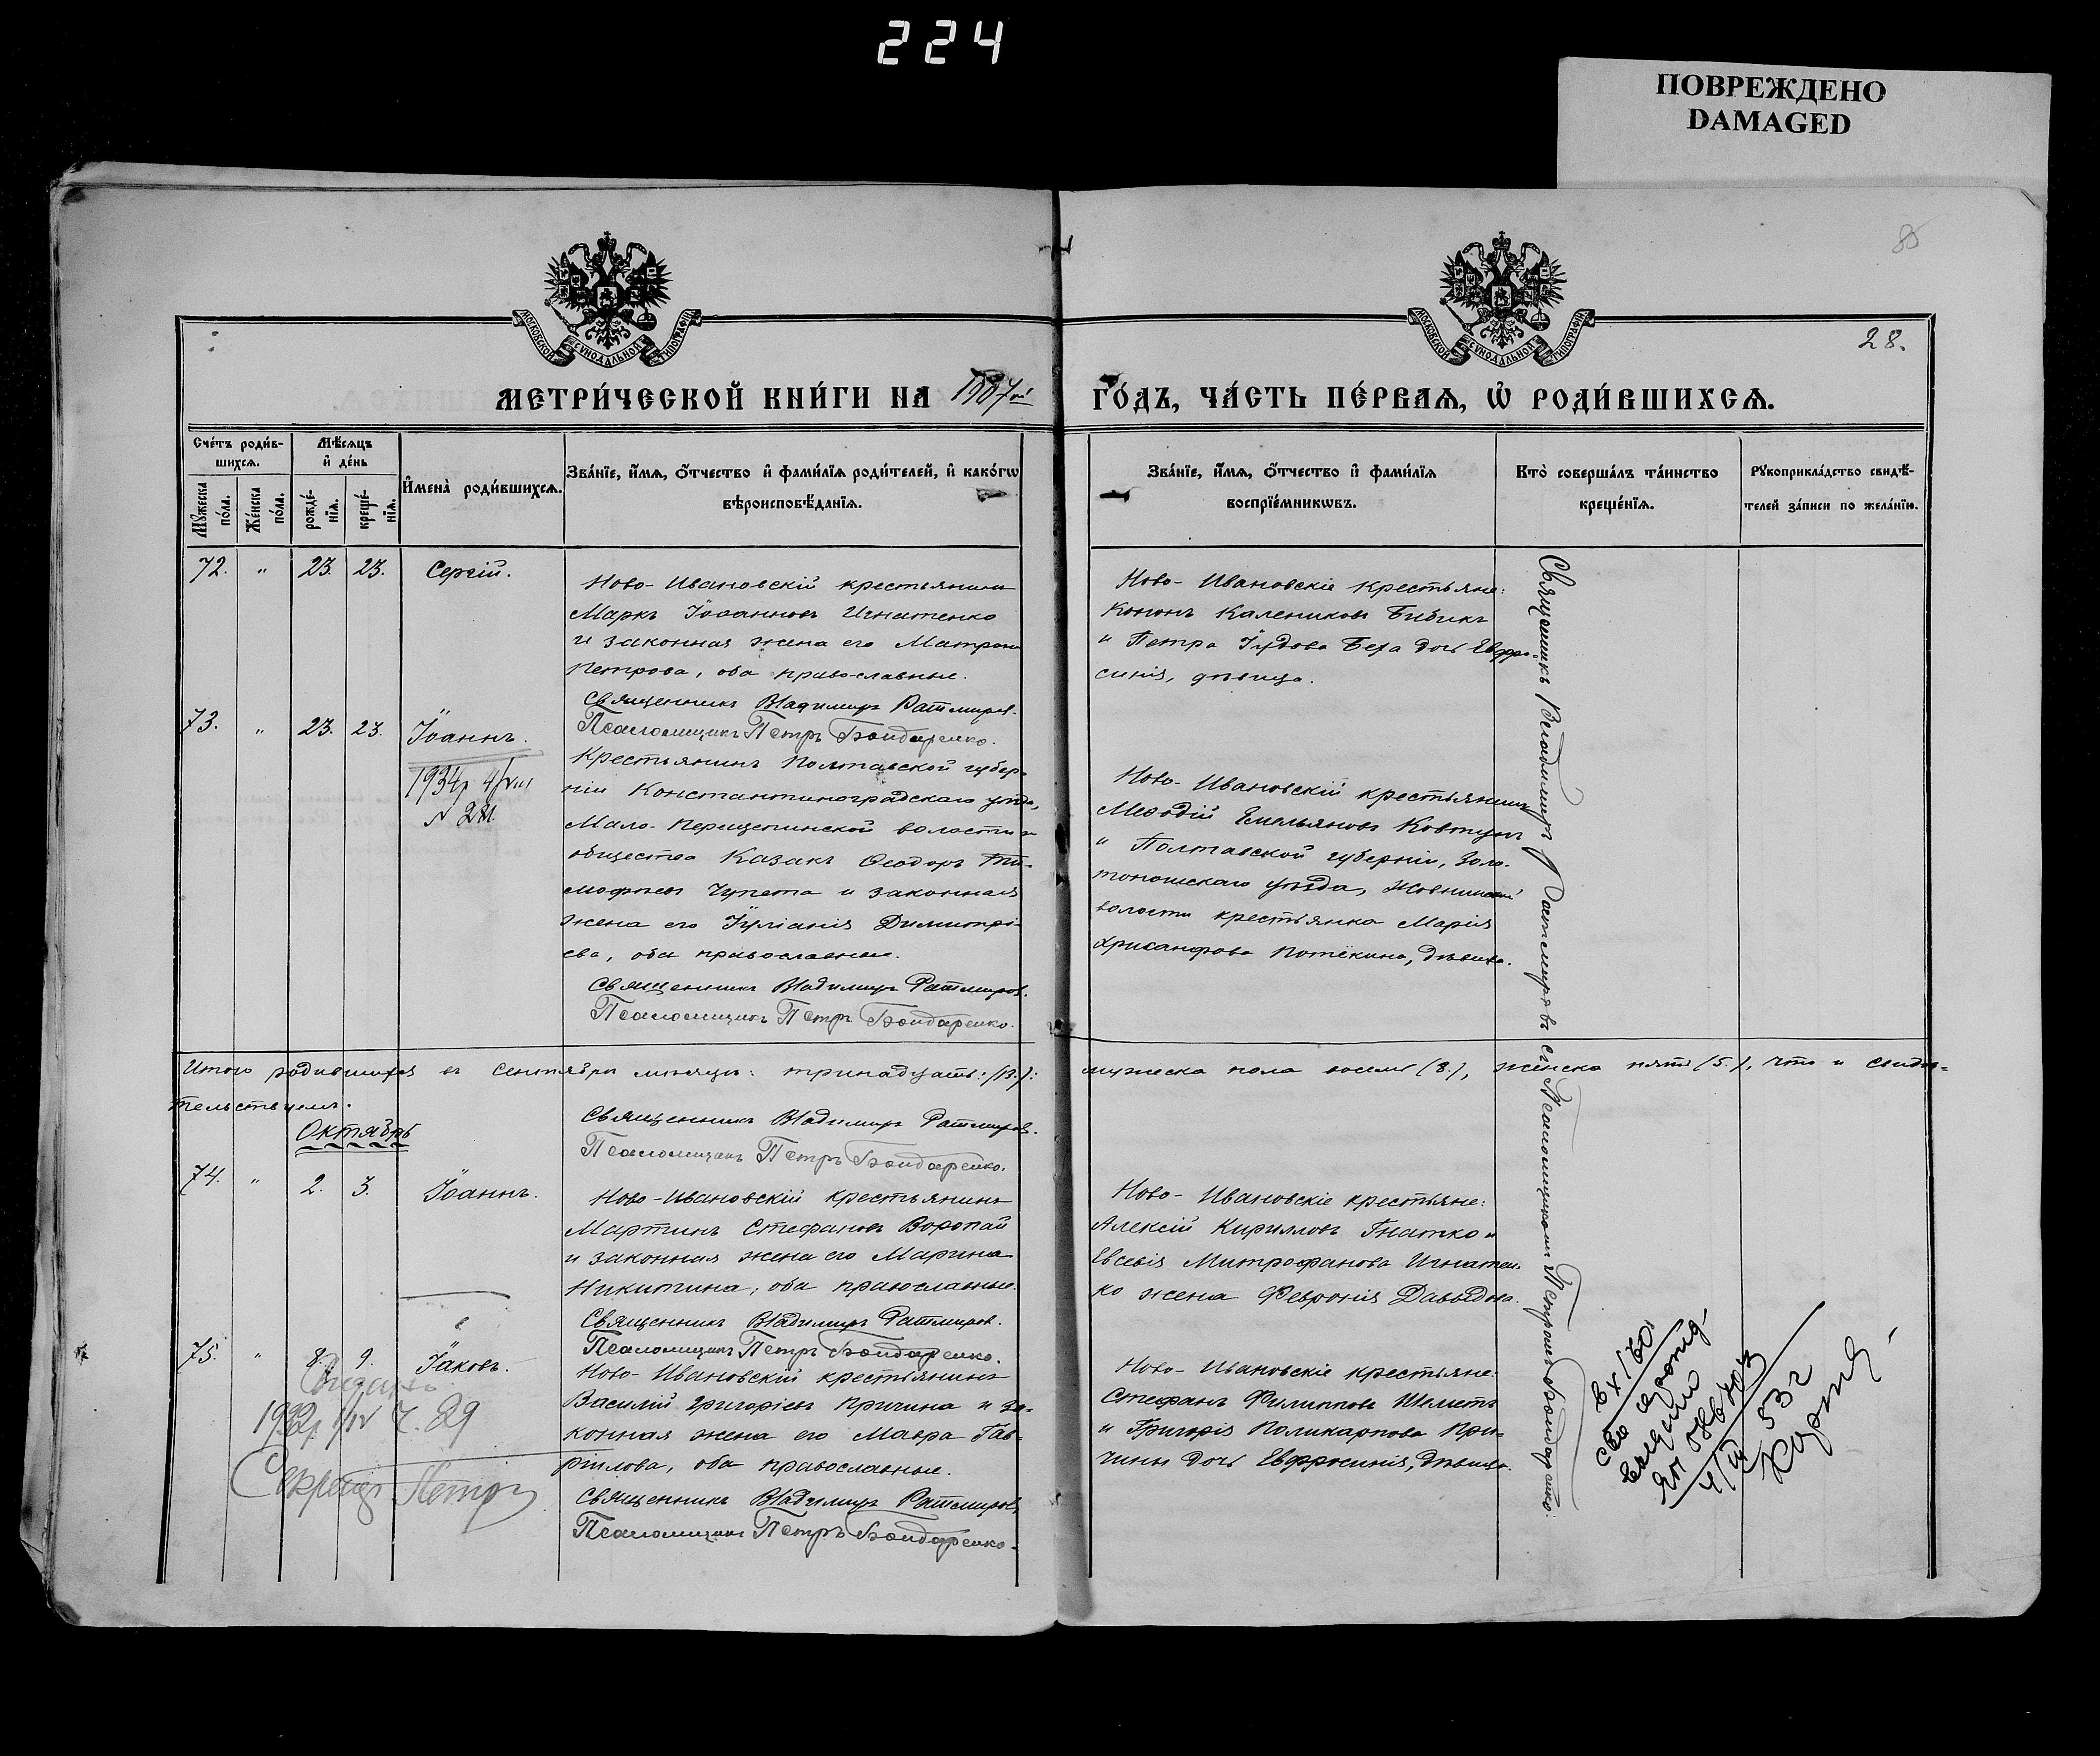 224
ПОВРЕЖДЕНО
DAMAGED
85
28.
МОСКОВСКОЙ СѴНОДАЛЬНОЙ ТИПОГРАФІИ
МОСКОВСКОЙ СѴНОДАЛЬНОЙ ТИПОГРАФІИ
МЕТРИ́ЧЕСКОЙ КНИ́ГИ НА 1907й ГО́ДЪ, ЧА́СТЬ ПЕ́РВАѦ, Ѡ҆ РОДИ́ВШИХСѦ.
Сче́тъ роди́в-
шихсѧ.
Мꙋ́жеска по́ла.
Же́нска по́ла.
Мѣ́сѧцъ
и҆ де́нь
рожде́-
нїѧ.
креще́-
нїѧ.
И҆мена̀ роди́вшихсѧ.
Зва́нїе, и҆́мѧ, ѻ҆́тчество и҆ фами́лїѧ роди́телей, и҆ како́гѡ
вѣроисповѣ́данїѧ.
Зва́нїе, и҆́мѧ, ѻ҆́тчество и҆ фами́лїѧ
воспрїе́мникѡвъ.
Кто̀ соверша́лъ та́инство
креще́нїѧ.
Рꙋкоприкла́дство свидѣ́-
телей за́писи по жела́нїю.
72. " 23. 23. Сергій.
Ново-Ивановскій крестьянинъ
Маркъ Іоанновъ Игнатенко
и законная жена его Матрона
Петрова, оба православные.
Священникъ Владимиръ Ратмировъ.
Псаломщикъ Петръ Бондаренко.
Ново-Ивановскіе крестьяне:
Кононъ Калениковъ Бибикъ
и Петра Іудова Беха дочь Евфро-
синія, дѣвица.
73. " 23. 23. Іоаннъ.
1934р 4/VIII
N 281.
Крестьянинъ Полтавской губер-
ніи Константиноградскаго уѣзда,
Мало-Перещепинской волости и
общества Казакъ Ѳеодоръ Ти-
мофеевъ Чупета и законная
жена его Іуліанія Димитрі-
ева, оба православные.
Священникъ Владимиръ Ратмировъ.
Псаломщикъ Петръ Бондаренко.
Ново-Ивановскій крестьянинъ
Меѳодій Емельяновъ Ковтунъ
и Полтавской губерніи, Золо-
тоношскаго уѣзда, Жовнинской
волости крестьянка Марія
Хрисанфова Потёкина, дѣвица.
Итого родившихся въ Сентябрѣ мѣсяцѣ: тринадцать: (13.): мужеска пола восемь (8.), женска пять (5.), что и свидѣ-
тельствуемъ.
Священникъ Владимиръ Ратмировъ.
Псаломщикъ Петръ Бондаренко.
Октябрь
74. " 2. 3. Іоаннъ.
Ново-Ивановскій крестьянинъ
Мартинъ Стефановъ Воропай
и законная жена его Марина
Никитина, оба православные.
Священникъ Владимиръ Ратмировъ.
Псаломщикъ Петръ Бондаренко.
Ново-Ивановскіе крестьяне:
Алексій Кирилловъ Гнатко и
Евсевія Митрофанова Игнатен-
ко жена Февронія Давыдова.
75. " 8. 9. Іаковъ.
Ч. 89
Секретар Петри
Ново-Ивановскій крестьянинъ
Василій Григорьевъ Причина и за-
конная жена его Мавра Гав-
ріилова, оба православные.
Священникъ Владимиръ Ратмировъ
Псаломщикъ Петръ Бондаренко.
Ново-Ивановскіе крестьяне:
Стефанъ Филипповъ Шеметъ
и Григорія Поликарпова При-
чины дочь Евфросинія, дѣвица.
Священникъ Владимиръ Ратмировъ съ Псаломщикомъ Петромъ Бондаренко:
вх 160
53г